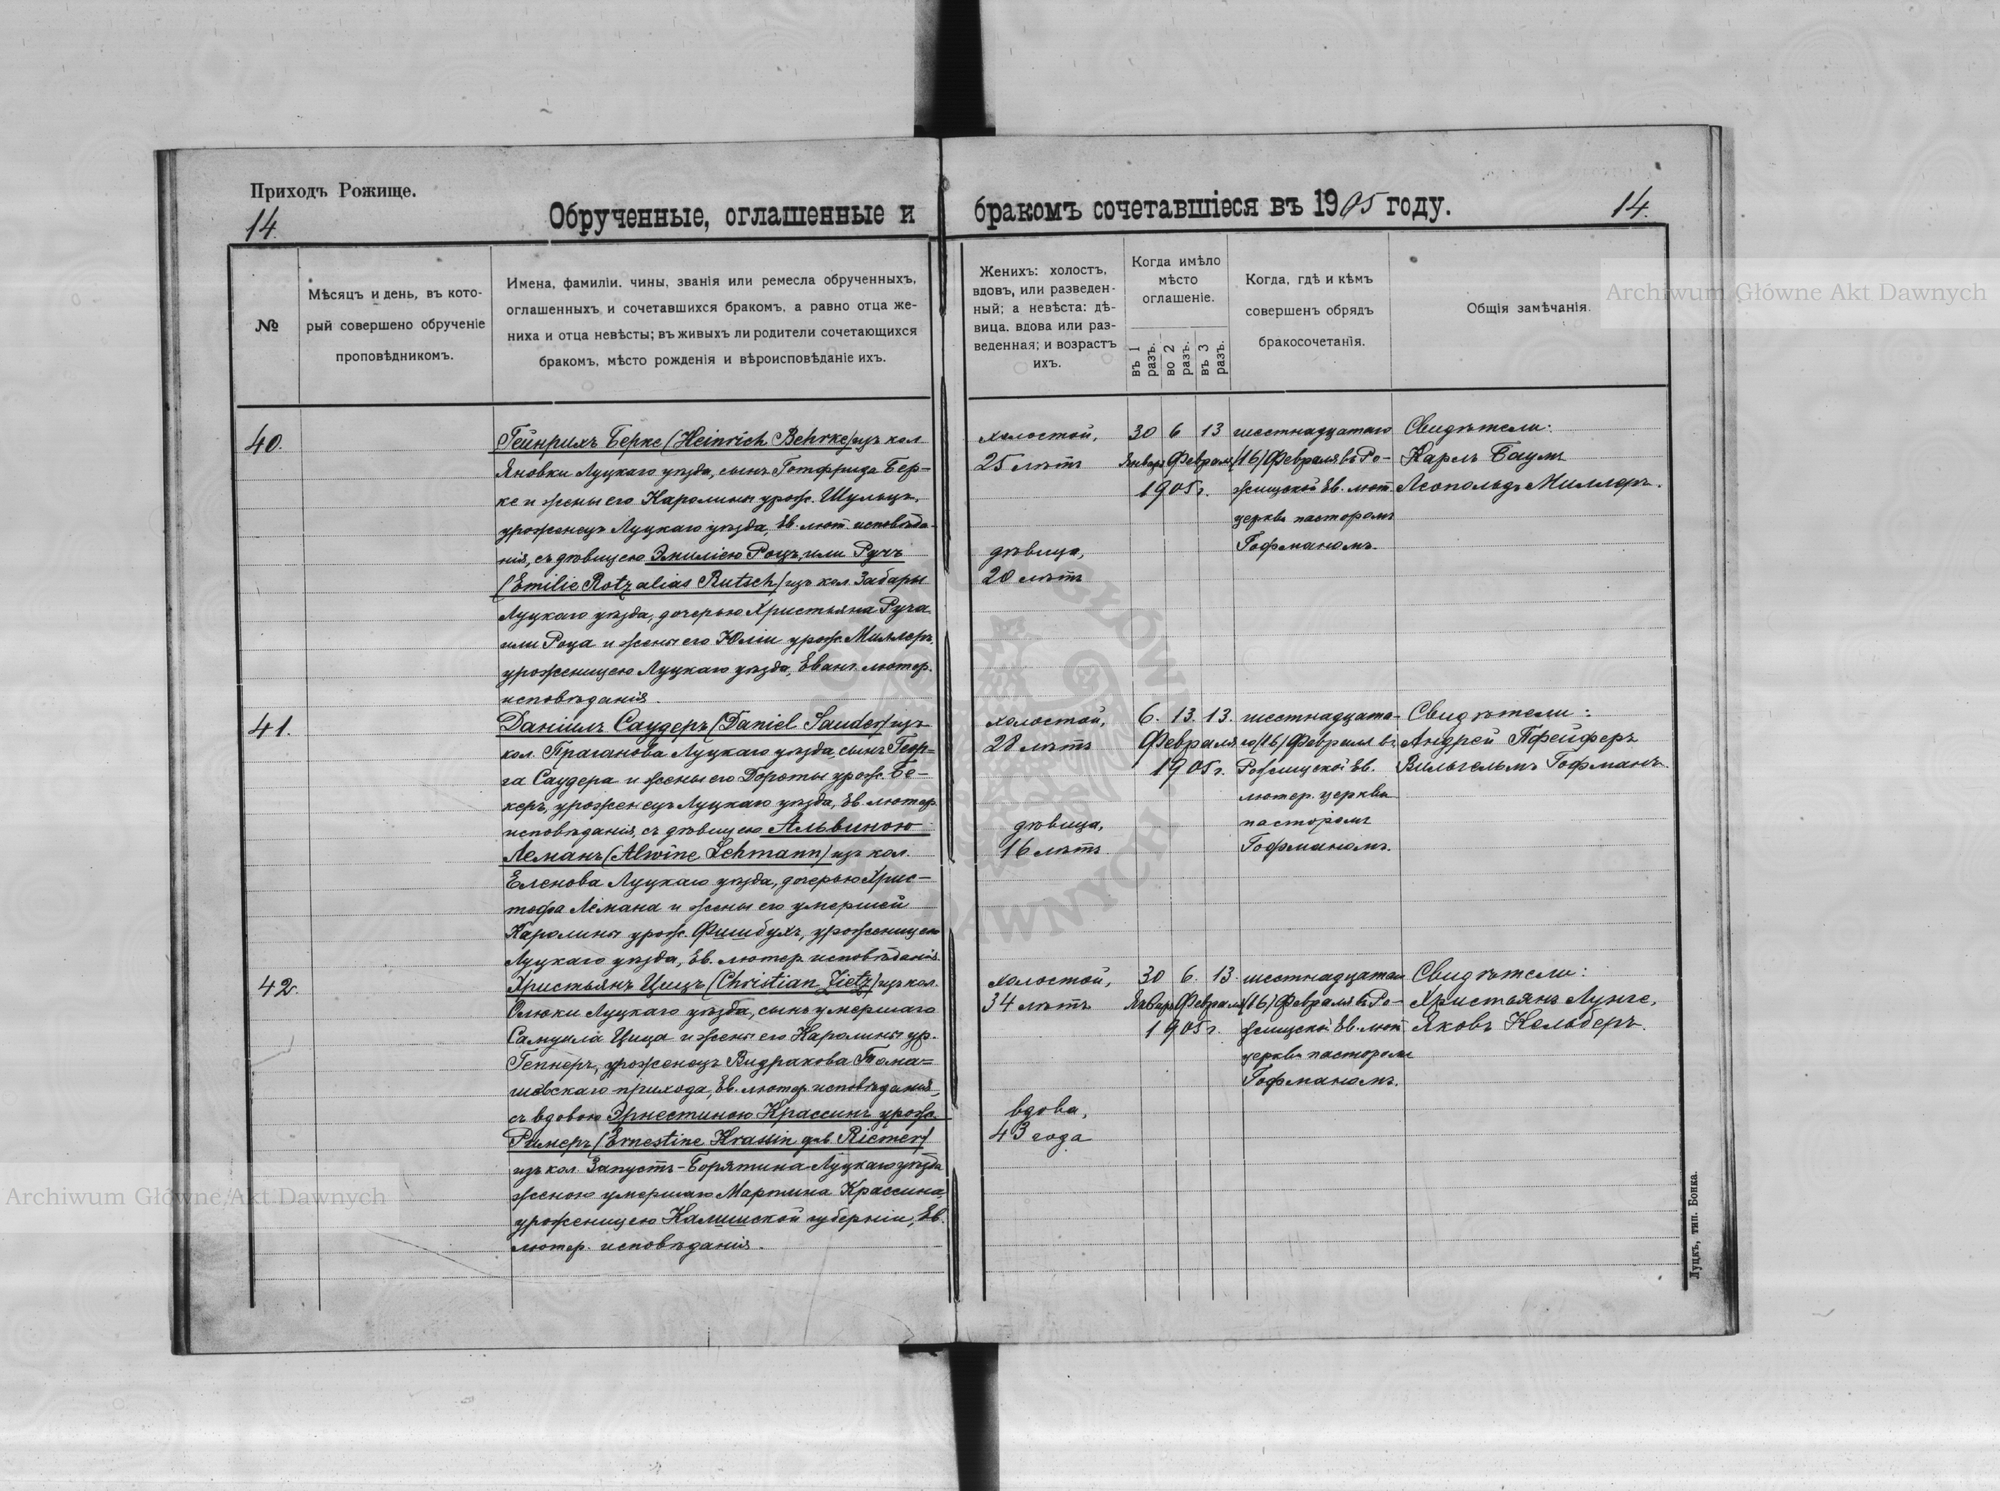 Приходъ Рожище.
14.
Обрученные, оглашенные и бракомъ сочетавшіеся въ 1905 году.
14.
№
Мѣсяцъ и день, въ кото-
рый совершено обрученіе
проповѣдникомъ.
Имена, фамиліи, чины, званія или ремесла обрученныхъ,
оглашенныхъ и сочетавшихся бракомъ, а равно отца же-
ниха и отца невѣсты; въ живыхъ ли родители сочетающихся
бракомъ, мѣсто рожденія и вѣроисповѣданіе ихъ.
Женихъ: холостъ,
вдовъ, или разведен-
ный; а невѣста: дѣ-
вица, вдова или раз-
веденная; и возрастъ
ихъ.
Когда имѣло
мѣсто
оглашеніе.
въ 1 разъ.
во 2 разъ.
въ 3 разъ.
Когда, гдѣ и кѣмъ
совершенъ обрядъ
бракосочетанія.
Общія замѣчанія.
40.
Гейнрихъ Берке (Heinrich Behrke) изъ кол.
Яновки Луцкаго уѣзда, сынъ Готфрида Бер-
ке и жены его Каролины урож. Шульцъ,
уроженецъ Луцкаго уѣзда, Ев. лют. исповѣда-
нія, съ дѣвицею Эмиліею Роцъ, или Ручъ
(Emilie Rotz alias Rutsch) изъ кол. Забары
Луцкаго уѣзда, дочерью Христьяна Руча
или Роца и жены его Юліи урож. Миллеръ,
уроженицею Луцкаго уѣзда, Еванг. лютер.
исповѣданія.
холостой,
25 лѣтъ
дѣвица,
20 лѣтъ
30 6 13
Января Февраля
1905 г.
шестнадцатаго
(16) Февраля въ Ро-
жищской Ев. лют.
церкви пасторомъ
Гофманомъ.
Свидѣтели:
Карлъ Баумъ
Леопольдъ Миллеръ.
41.
Даніилъ Саудеръ (Daniel Sauder) изъ
кол. Праганова Луцкаго уѣзда, сынъ Геор-
га Саудера и жены его Дороты урож. Бе-
керъ, уроженецъ Луцкаго уѣзда, Ев. лютер.
исповѣданія, съ дѣвицею Альвиною
Леманъ (Alwine Lehmann) изъ кол.
Еленова Луцкаго уѣзда, дочерью Хрис-
тофа Лемана и жены его умершей
Каролины урож. Фишбухъ, уроженицею
Луцкаго уѣзда, Ев. лютер. исповѣданія.
холостой,
28 лѣтъ
дѣвица,
16 лѣтъ
6. 13. 13.
Февраля
1905 г.
шестнадцата-
го (16) Февраля въ
Рожищской Ев.
лютер. церкви
пасторомъ
Гофманомъ.
Свидѣтели:
Андрей Пфейферъ
Вильгельмъ Гофманъ.
42.
Христьянъ Цицъ (Christian Zietz) изъ кол.
Олюки Луцкаго уѣзда, сынъ умершаго
Самуила Цица и жены его Каролины ур.
Гепнеръ, уроженецъ Видракова Тома-
шовскаго прихода, Ев. лютер. исповѣданія,
съ вдовою Эрнестиною Крассинъ урож.
Римеръ (Ernestine Krassin geb. Riemer)
изъ кол. Запустъ-Борятина Луцкаго уѣзда
женою умершаго Мартина Крассина,
уроженицею Калишской губерніи, Ев.
лютер. исповѣданія.
холостой,
34 лѣтъ
вдова,
43 года
30 6. 13.
Января Февраля
1905 г.
шестнадцатаго
(16) Февраля въ Ро-
жищской Ев. лют.
церкви пасторомъ
Гофманомъ.
Свидѣтели:
Христьянъ Лунге,
Яковъ Кельберъ.
Луцкъ, тип. Бонка.
Archiwum Główne Akt Dawnych
Archiwum Główne Akt Dawnych